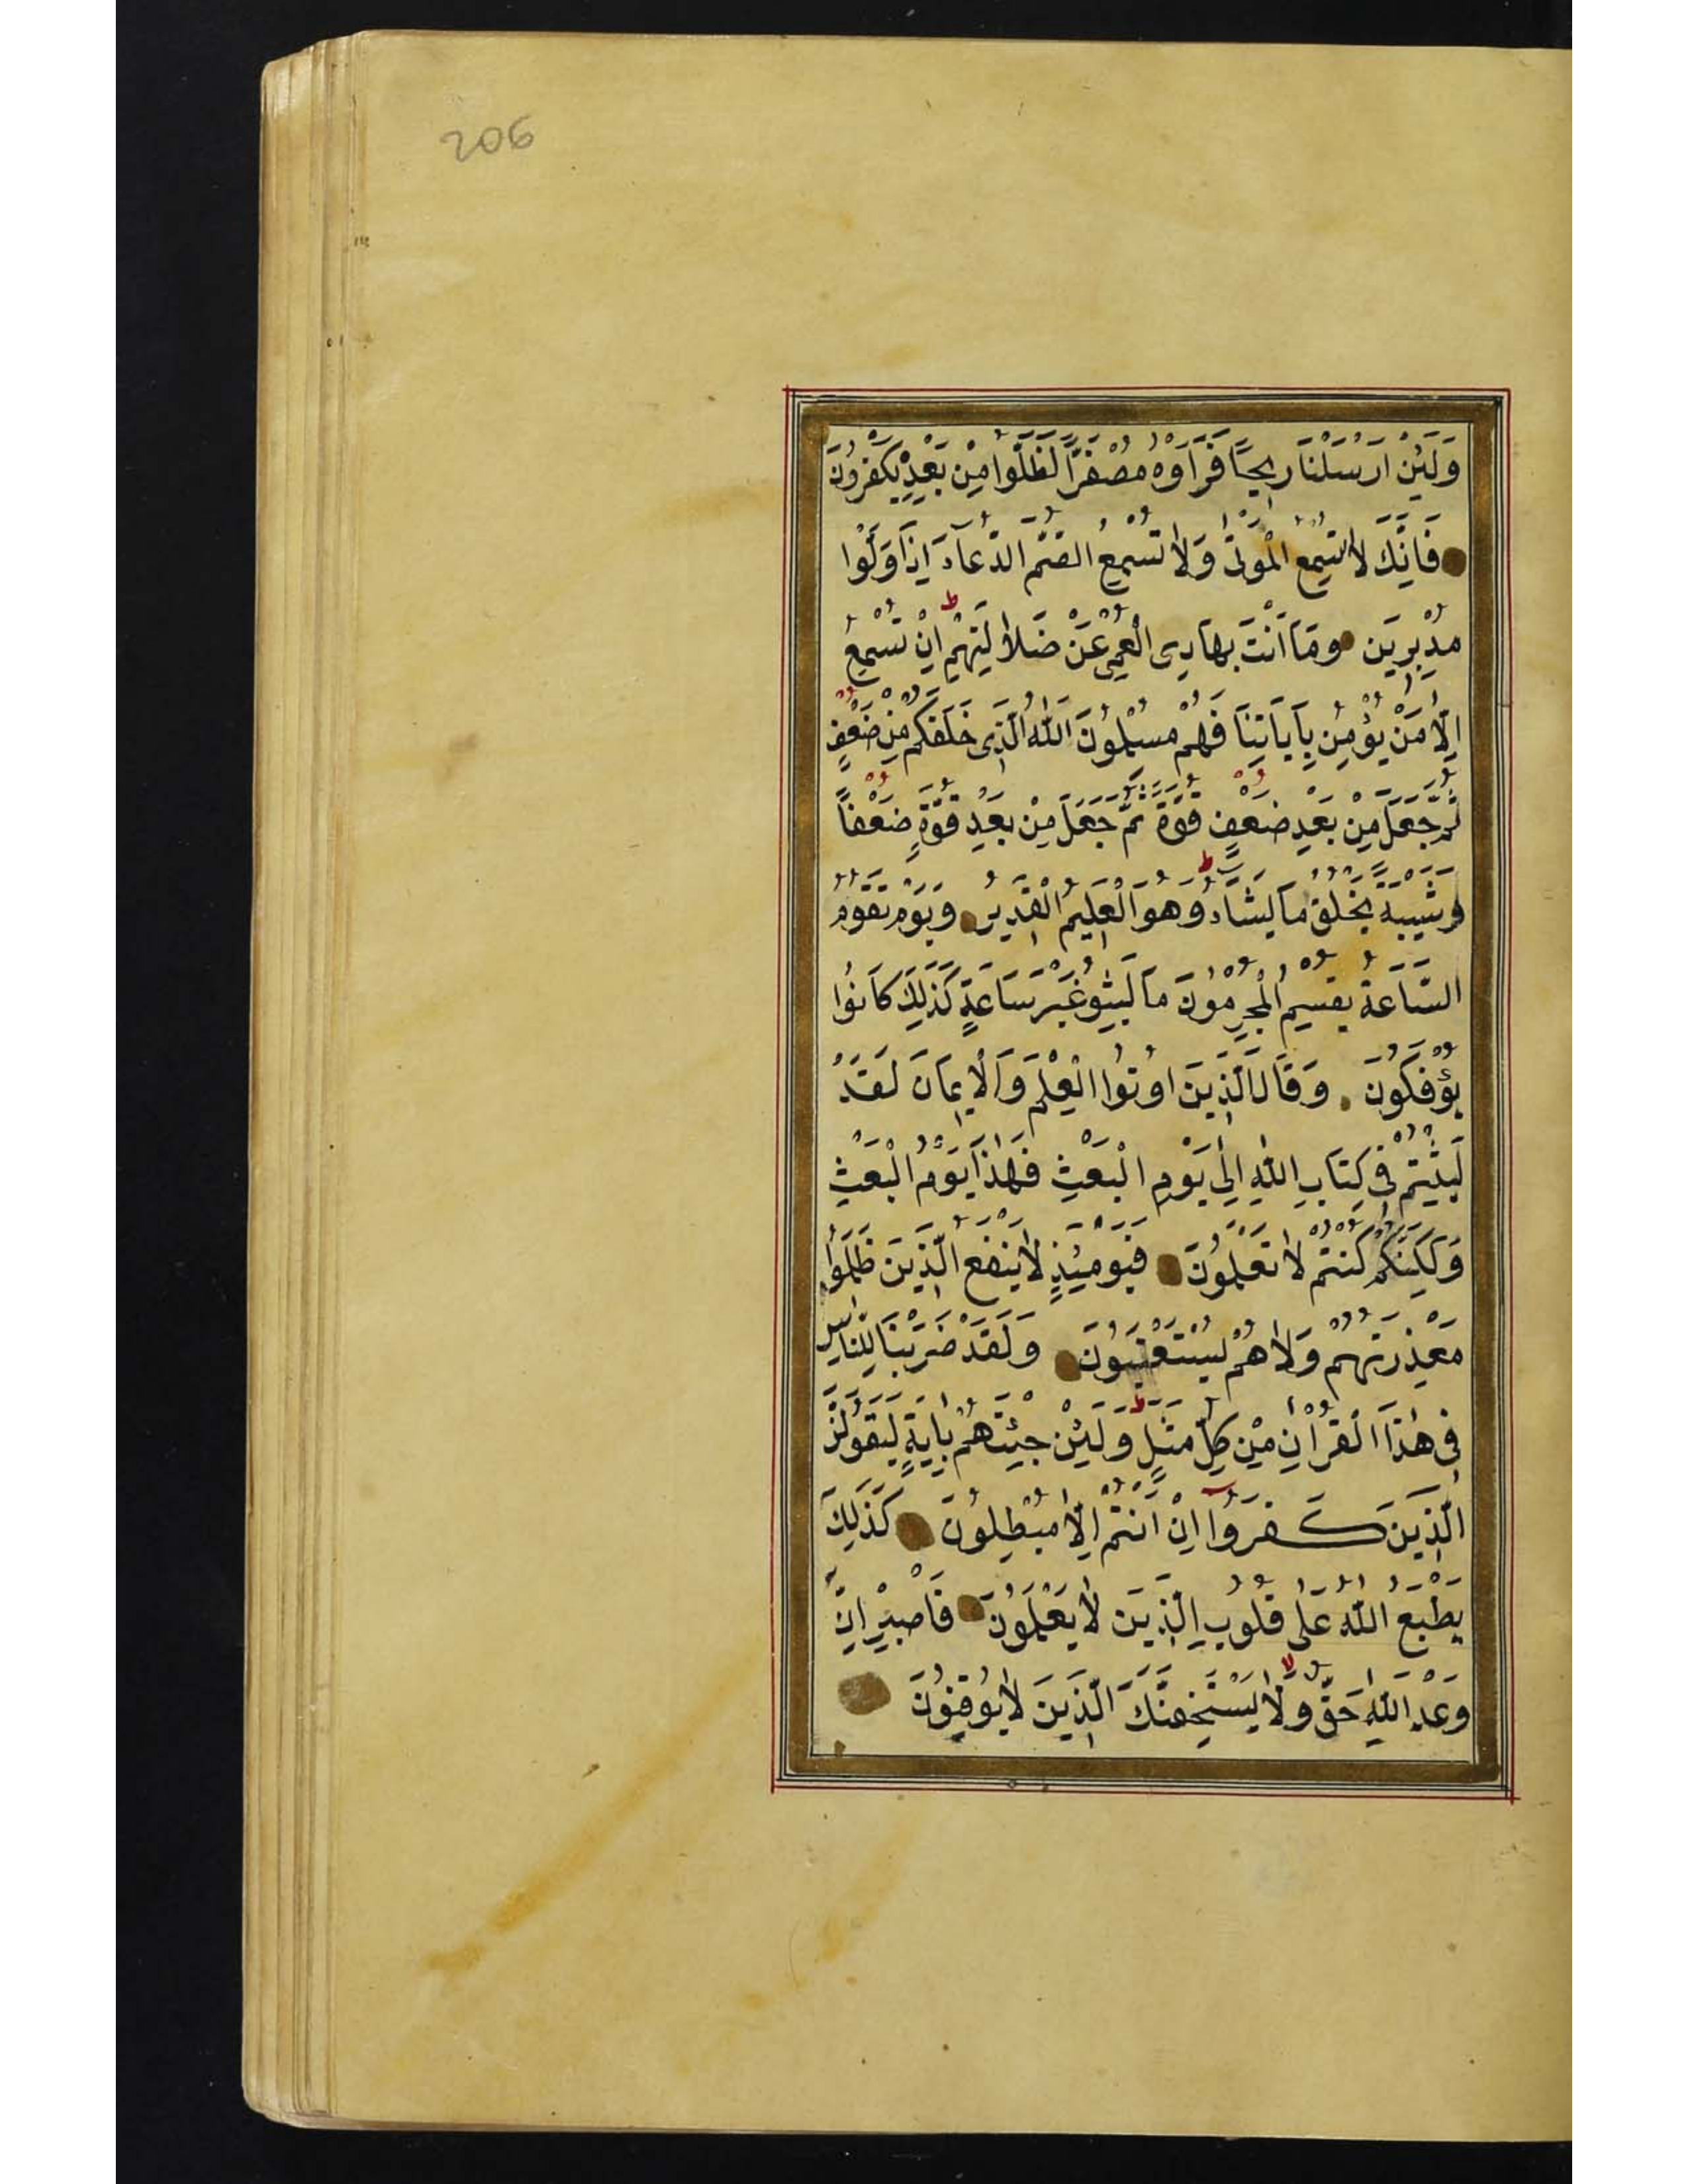 206
وَلَئِنْ اَرْسَلْنَا رِيحًا فَرَاَوْهُ مُصْفَرًّا لَظَلُّوا مِنْ بَعْدِهِ يَكْفُرُونَ
فَاِنَّكَ لَا تُسْمِعُ الْمَوْتٰى وَلَا تُسْمِعُ الصُّمَّ الدُّعَاءَ اِذَا وَلَّوْا
مُدْبِرِينَ وَمَا اَنْتَ بِهَادِى الْعُمْىِ عَنْ ضَلَالَتِهِمْ ط اِنْ تُسْمِعُ
اِلَّا مَنْ يُؤْمِنُ بِاٰيَاتِنَا فَهُمْ مُسْلِمُونَ اَللّٰهُ الَّذِى خَلَقَكُمْ مِنْ ضَعْفٍ
ثُمَّ جَعَلَ مِنْ بَعْدِ ضَعْفٍ قُوَّةً ثُمَّ جَعَلَ مِنْ بَعْدِ قُوَّةٍ ضَعْفًا
وَشَيْبَةً يَخْلُقُ مَا يَشَاءُ ط وَهُوَ الْعَلِيمُ الْقَدِيرُ وَيَوْمَ تَقُومُ
السَّاعَةُ يُقْسِمُ الْمُجْرِمُونَ مَا لَبِثُو غَيْرَ سَاعَةٍ كَذٰلِكَ كَانُوا
يُؤْفَكُونَ وَقَالَ الَّذِينَ اُوتُوا الْعِلْمَ وَالْاِيمَانَ لَقَدْ
لَبِثْتُمْ فِى كِتَابِ اللّٰهِ اِلٰى يَوْمِ الْبَعْثِ فَهٰذَا يَوْمُ الْبَعْثِ
وَلٰكِنَّكُمْ كُنْتُمْ لَا تَعْلَمُونَ فَيَوْمَئِذٍ لَا يَنْفَعُ الَّذِينَ ظَلَمُوا
مَعْذِرَتُهُمْ وَلَا هُمْ يُسْتَعْتَبُونَ وَلَقَدْ ضَرَبْنَا لِلنَّاسِ
فِى هٰذَا الْقُرْاٰنِ مِنْ كُلِّ مَثَلٍ ط وَلَئِنْ جِئْتَهُمْ بِاٰيَةٍ لَيَقُولَنَّ
الَّذِينَ كَفَرُوا اِنْ اَنْتُمْ اِلَّا مُبْطِلُونَ كَذٰلِكَ
يَطْبَعُ اللّٰهُ عَلٰى قُلُوبِ الَّذِينَ لَا يَعْلَمُونَ فَاصْبِرْ اِنَّ
وَعْدَ اللّٰهِ حَقٌّ وَلَا يَسْتَخِفَّنَّكَ الَّذِينَ لَا يُوقِنُونَ